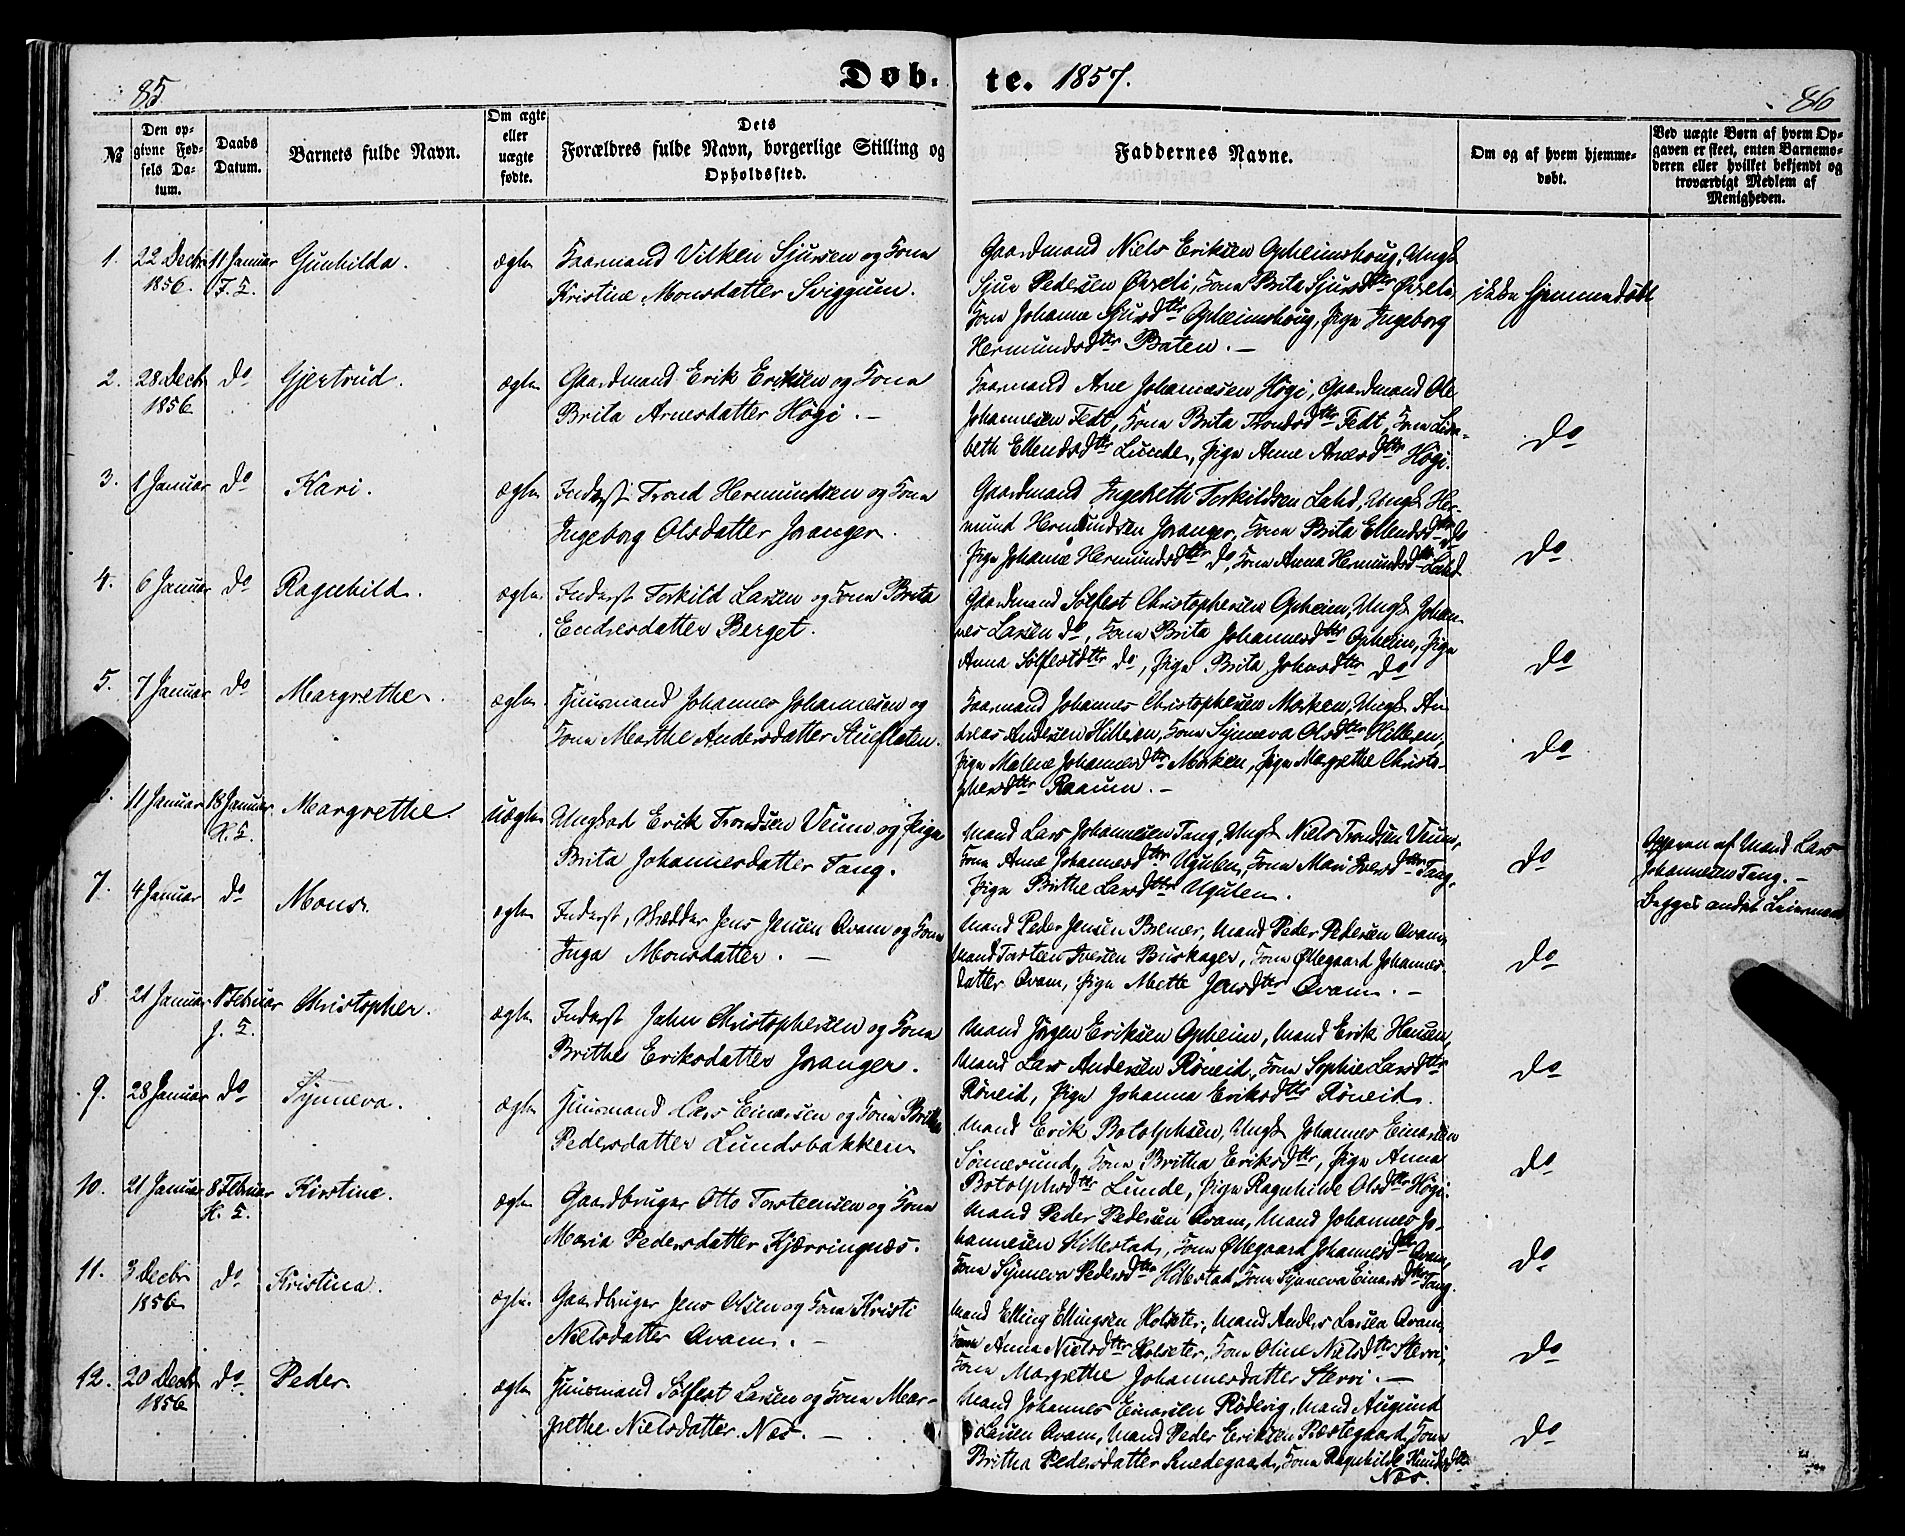 85
Døb-
te. 1857.
86
№
Den op-
givne Fød-
sels Da-
tum.
Daabs
Datum.
Barnets fulde Navn.
Om ægte
eller
uægte
fødte.
Dets
Forældres fulde Navn, borgerlige Stilling og
Opholdssted.
Faddernes Navne.
Om og af hvem hjemme-
døbt.
Ved uægte Børn af hvem Op-
gaven er skeet, enten Barnemo-
deren eller hvilket bekjendt og
troværdigt Medlem af
Menigheden.
1. 22 Decbr 11 Januar Gunhilda. ægte
1856.
Gaardmand Vilken Sjursen og Kona
Kristine Monsdatter Sviggum.
Gaardmand Niels Eriksen Opheimshoug, Ungk
Sjur Pedersen Øxeli, Kona Brita Sjursdtter Øxeli
Kona Johanne Sjursdtter Opheimshoug, Pige Ingeborg
Hermundsdtter Baten. —
ikke hjemmedøbt
2. 28 Decb do Gjertrud. ægte
1856
Gaardmand Erik Eriksen og Kona
Brita Arnesdatter Høgi. —
Kaarmand Arne Johannesen Høgi, Gaardmand Ole
Johannesen Fedt, Kona Brita Trondsdtter Fedt, Kona Lisa-
beth Ellendsdtter Lunde, Pige Anne Arnesdtter Høgi.
do
3. 1 Januar do Kari. ægte
Inderst Trond Hermundsen og Kona
Ingeborg Olsdatter Joranger.
Gaardmand Ingebreth Torkildsen Lahd, Ungk Her-
mund Hermundsen Joranger, Kona Brita Ellendsdtter do
Pige Johanne Hermundsdtter do, Kona Anna Hermundsdtter Lahd
do
4. 6 Januar do Ragnhild. ægte
Inderst Torkild Larsen og Kona Brita
Endresdatter Berget.
Gaardmand Sølfest Christophersen Opheim, Ungk Johan-
nes Larsen do, Kona Brita Johannesdtter Opheim, Pige
Anna Sølfestdtter do, Pige Brita Johnsdtter do
do
5. 7 Januar do Margrethe. ægte
Huusmand Johannes Johannesen og
Kona Marthe Andersdatter Stuefloten.
Kaarmand Johannes Christophersen Morken, Ungk An-
dreas Andersen Hillesen, Kona Synneva Olsdtter Hillesen,
Pige Malene Johannesdtter Morken, Pige Margrethe Christo-
phersdtter Raaum. —
do
11 Januar 18 Januar Margrethe. uægte
Ungkarl Erik Trondsen Veum og Pige
Brita Johannesdatter Tang.
Mand Lars Johannesen Tang, Ungk Niels Trondsen Veum,
Kona Anne Johannesdtter Ugulen, Kona Mari Iversdtter Tang,
Pige Brithe Larsdtter Ugulen.
do
Opgaven af Mand Lars
Johannesen Tang. —
Begges andet Leiermaal
7. 4 Januar do Mons. ægte
Inderst, Skrædder Jens Jensen Qvam og Kona
Inga Monsdatter. —
Mand Peder Jensen Bremer, Mand Peder Pedersen Qvam
Mand Torsteen Iversen Buskager, Kona Øllegaard Johannes-
datter Qvam, Pige Mette Jensdtter Qvam. —
do
8 21 Januar 1 Februar Christopher. ægte
Inderst John Christophersen og Kona
Brithe Eriksdatter Joranger.
Mand Jørgen Eriksen Opheim, Mand Erik Hansen,
Mand Lars Andersen Røneid, Kona Sophie Larsdtter
Røneid, Pige Johanna Eriksdtter Røneid.
do
9. 28 Januar do Synneva. ægte
Huusmand Lars Einarsen og Kona Brithe
Pedersdatter Lundsbakken
Mand Erik Botolphsen, Ungk Johannes Einarsen
Sønnesund, Kona Britha Eriksdtter, Pige Anna
Botolphsdtter Lunde, Pige Ragnhilde Olsdtter Høgi.
do
10. 21 Januar 8 Februar Kirstine. ægte
Gaardbruger Otto Torsteensen og Kona
Maria Pedersdatter Kjærringnæs.
Mand Peder Pedersen Qvam, Mand Johannes Jo-
hannesen Hillestad, Kona Øllegaard Johannesdtter Qvam,
Kona Synneva Pedersdtter Hillestad, Kona Synneva Einarsdtter Tang.
do
11. 3 Decbr do Kristina. ægte.
1856
Gaardbruger Jens Olsen og Kona Kristi
Nielsdatter Qvam. —
Mand Elling Ellingsen Kolseter, Mand Anders Larsen Qvam,
Kona Anna Nielsdtter Kolseter, Kona Oline Nielsdtter Sterri,
Kona Margrethe Johannesdatter Sterri. —
do
12. 20 Decbr do Peder. ægte
1856
Huusmand Sølfest Larsen og Kona Mar-
grethe Nielsdatter Næs. —
Mand Johannes Einarsen Rødevig, Mand Augund
Larsen Qvam, Mand Peder Eriksen Præstegaard, Kona
Britha Pedersdatter Snedegaard, Kona Ragnhilde Knudsdtter
Næs.
do